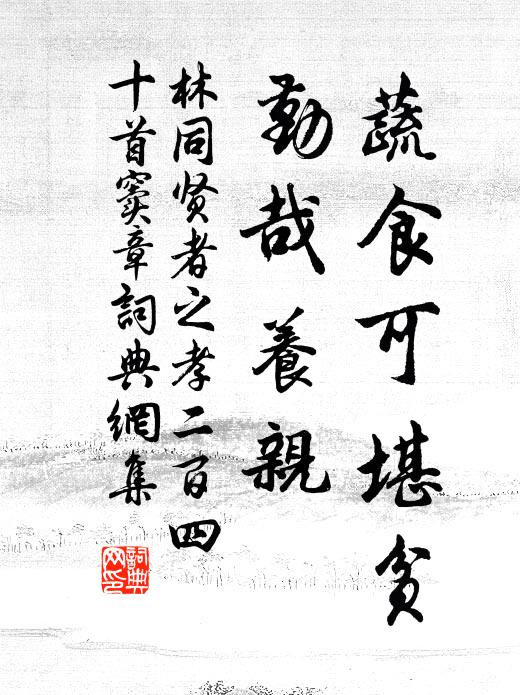 蔬食可堪贫
勤哉養親
林同贤者之孝二百四
十首窦章詞典網集
詞典
网印